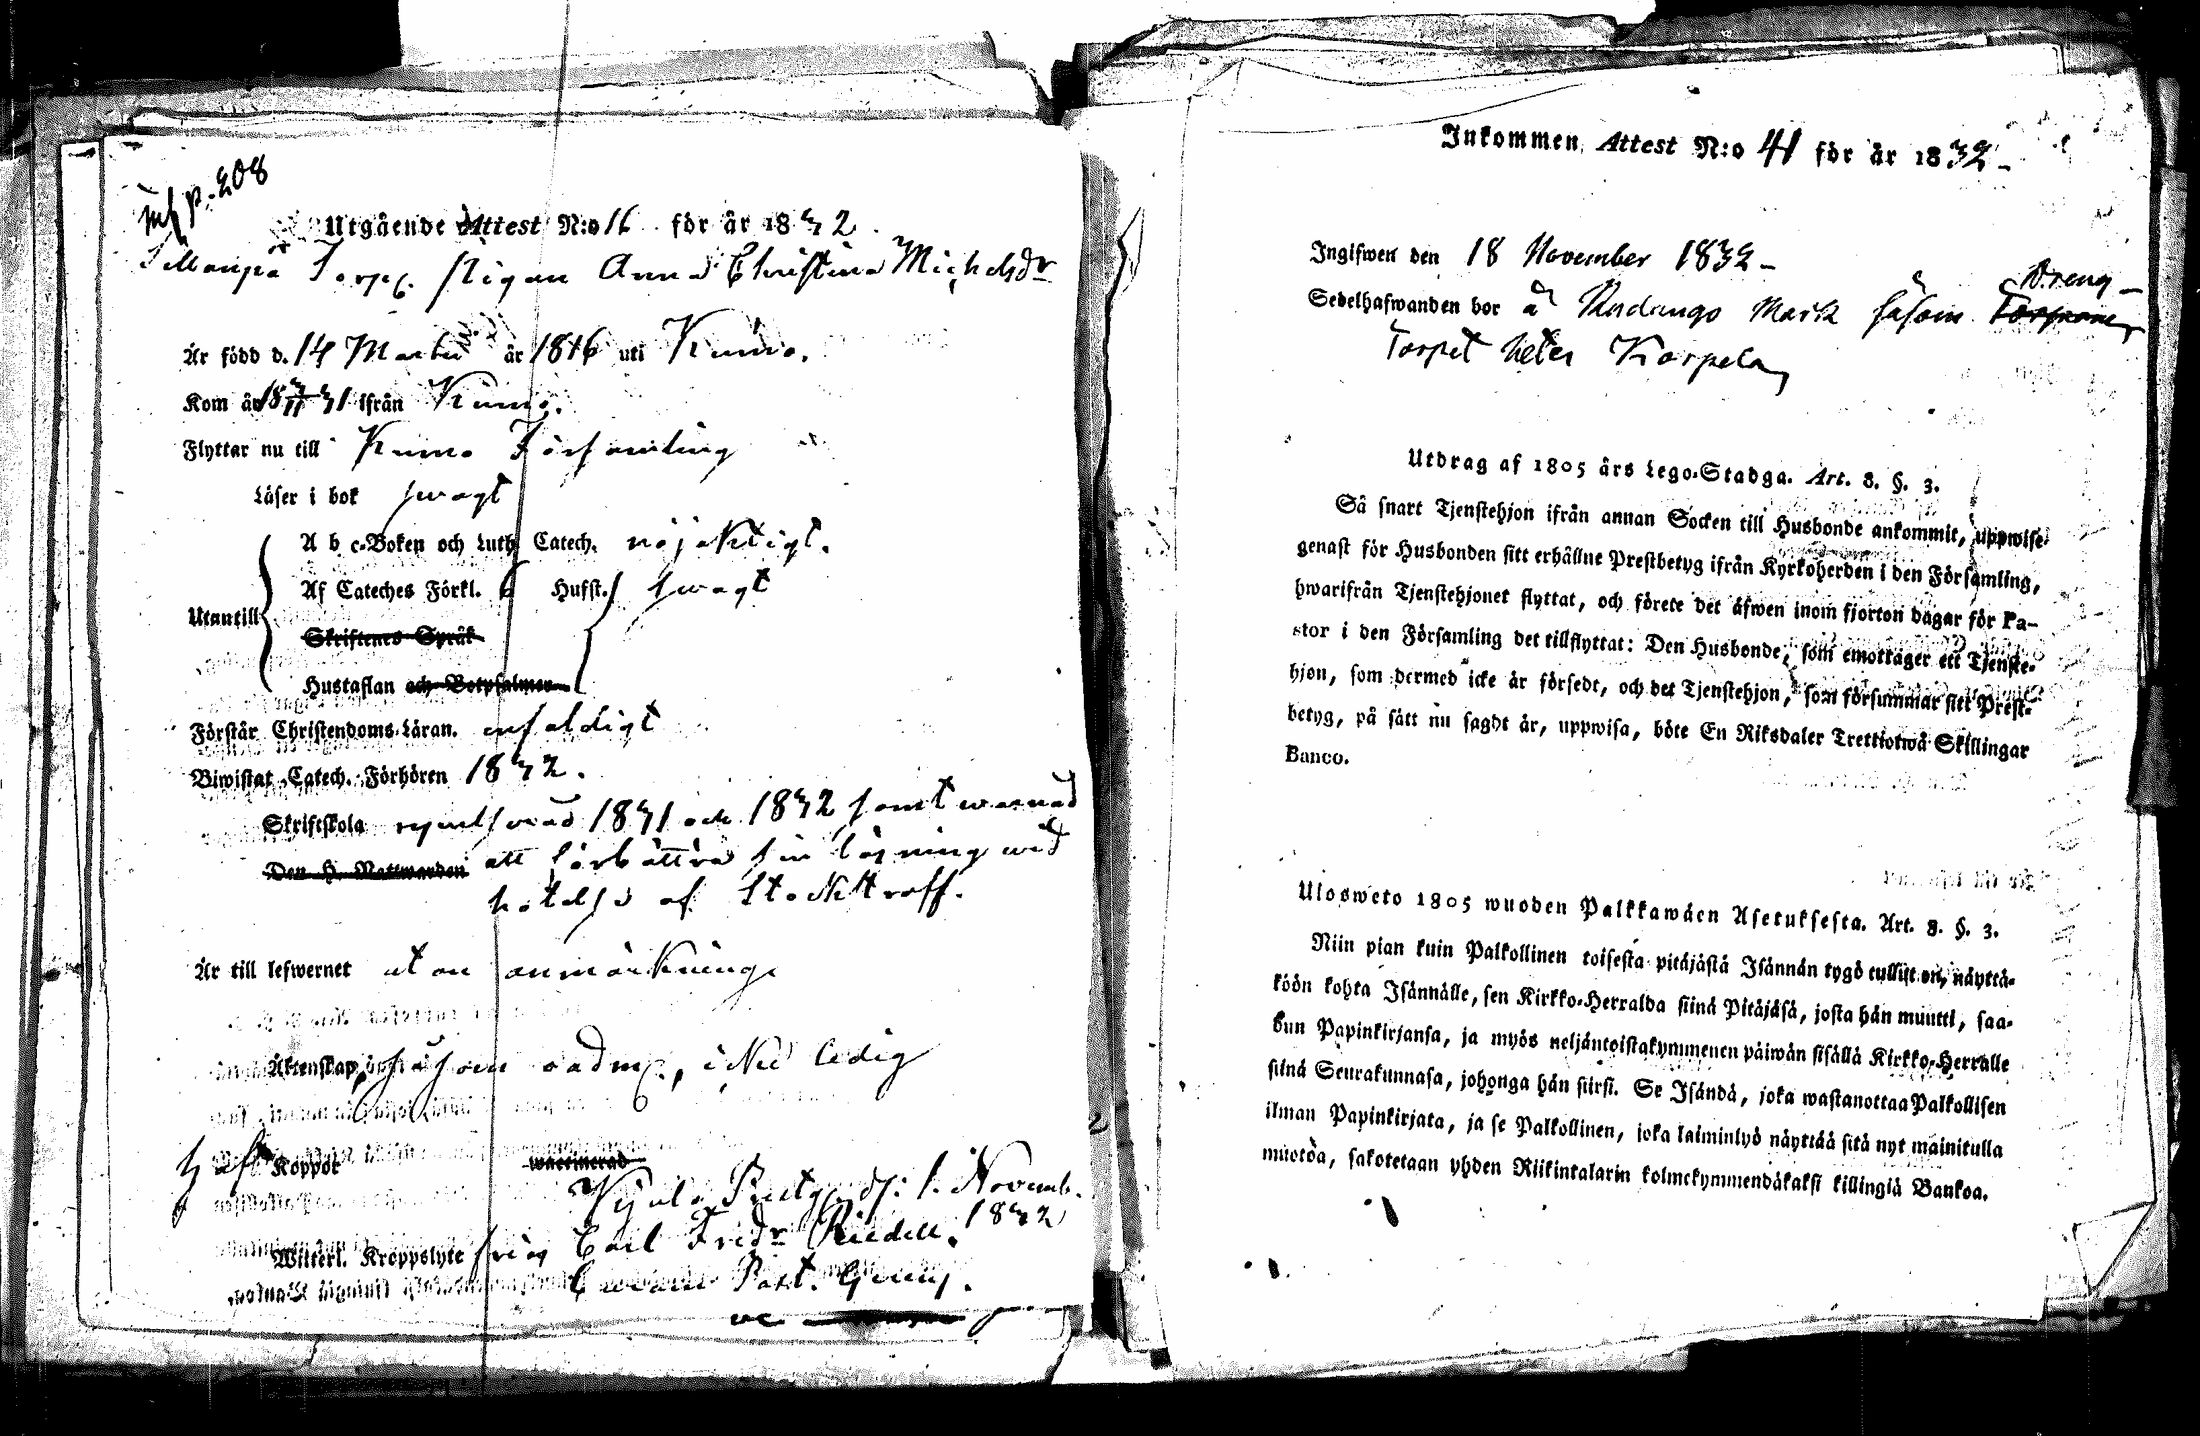 p. 208
Utgående Attest N:o 16 för år 1832.
Torp. pigan Anna Christina Michelsdr
Är född d. 14 Martii år 1816 uti Kumo.
Kom år 18 31 ifrån Kumo.
Flyttar nu till Kumo Församling
Läser i bok swagt
A b c-Boken och Luth. Catech. nöjaktigt.
Af Cateches Förkl. 6 Hufst. swagt
Utantill
Skriftenes Språk
Hustaflan och Botpsalmer
Förstår Christendoms-Läran. enfaldigt
Biwistat Catech. Förhören 1832.
Skriftskola 1831 och 1832 samt warnad
Den H. Nattwarden att förbättra sin läsning wid
hotelse af Stockstraff.
Är till lefwernet utan anmärkning.
Äktenskap, såsom , icke ledig
haft Koppor waccinerad
Kjulo d. 1. Novemb.
1832
Witterl. Kroppslyte fri Carl Fredr Riedell.
Past.
Inkommen Attest N:o 41 för år 1832-
Ingifwen den 18 November 1832-
Dreng-
Sedelhafwanden bor å Mark såsom
Torpet heter Korpela,
Utdrag af 1805 års Lego-Stadga. Art. 8. §. 3.
Så snart Tjenstehjon ifrån annan Socken till Husbonde ankommit, uppwise
genast för Husbonden sitt erhållne Prestbetyg ifrån Kyrkoherden i den Församling,
hwarifrån Tjenstehjonet flyttat, och förete det äfwen inom fjorton dagar för Pa-
stor i den Församling det tillflyttat: Den Husbonde, som emottager ett Tjenste-
hjon, som dermed icke är försedt, och det Tjenstehjon, som försummar sitt Prest-
betyg, på sätt nu sagdt är, uppwisa, böte En Riksdaler Trettiotwå Skillingar
Banco.
Ulosweto 1805 wuoden Palkkawäen Asetuksesta. Art. 8. §. 3.
Niin pian kuin Palkollinen toisesta pitäjästä Isännän tygö tullut on, näyttä-
köön kohta Isännälle, sen Kirkko-Herralda siinä Pitäjäsä, josta hän muutti, saa-
dun Papinkirjansa, ja myös neljäntoistakymmenen päiwän sisällä Kirkko-Herralle
siinä Seurakunnasa, johonga hän siirsi. Se Isändä, joka wastanottaa Palkollisen
ilman Papinkirjata, ja se Palkollinen, joka laiminlyö näyttää sitä nyt mainitulla
muotoa, sakotetaan yhden Riikintalarin kolmekymmendäkaksi killingiä Bankoa.